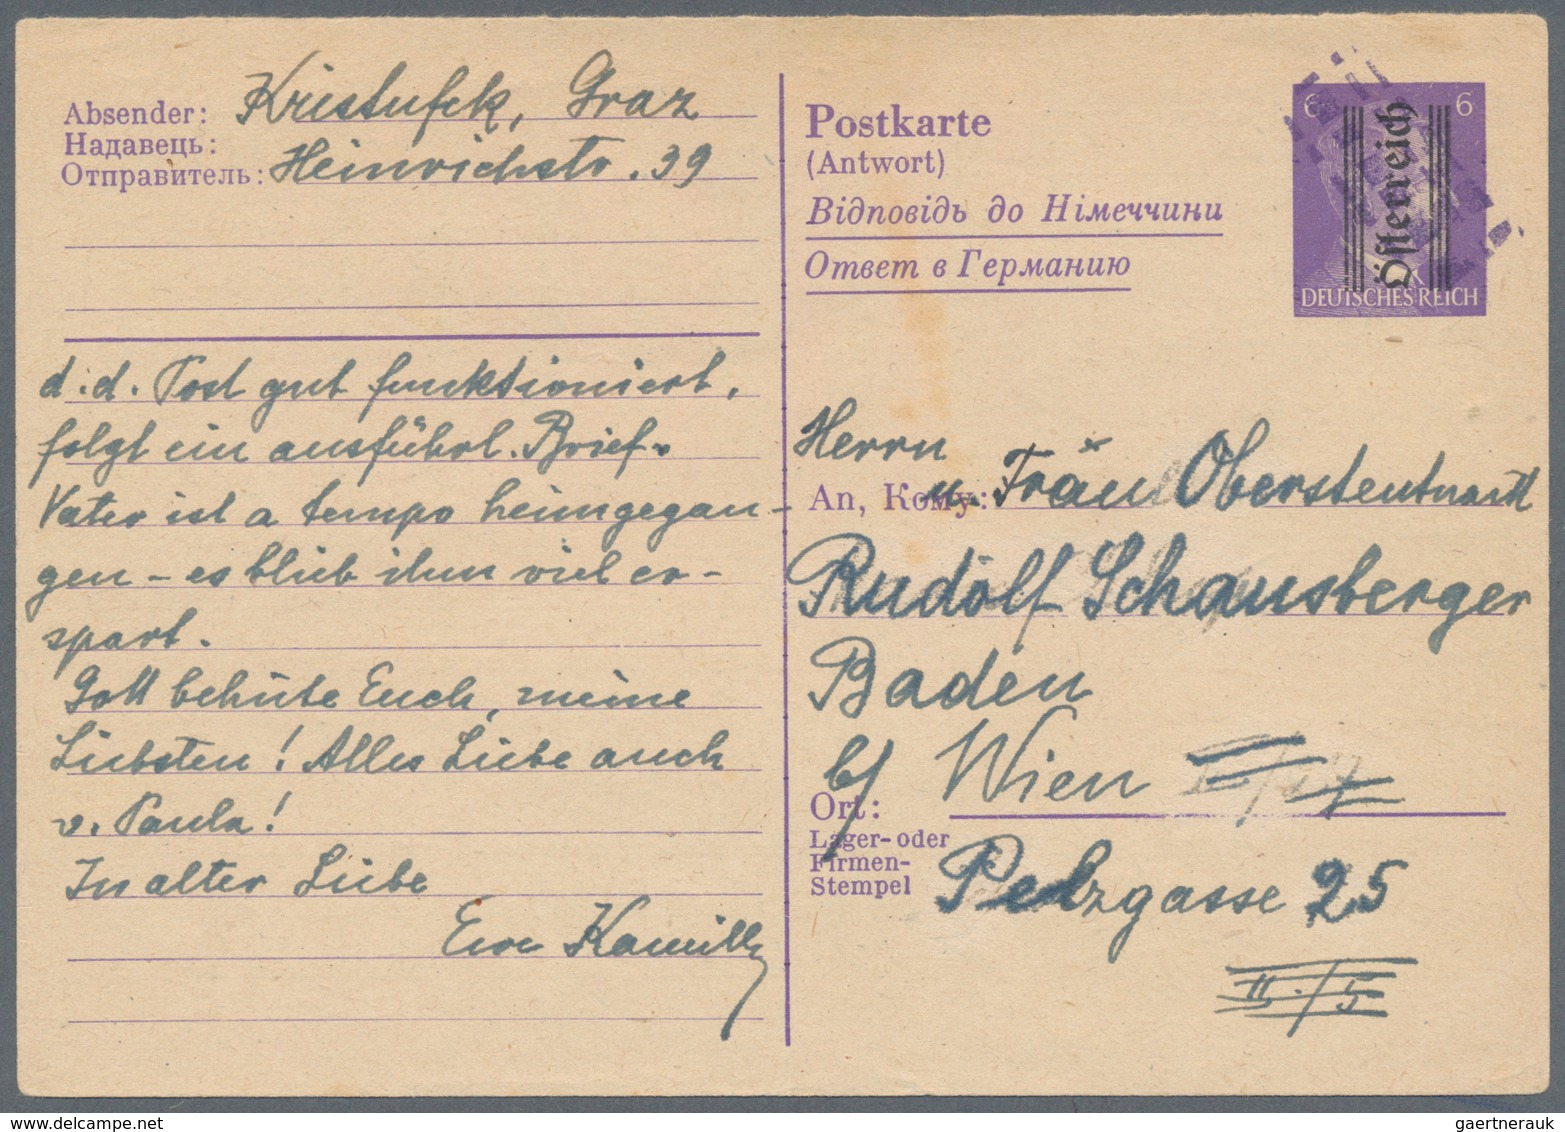 Absender: Kristufek, Graz
Надавець:
Отправитель: Heinrichstr. 39
d. d. Post gut funktioniert,
folgt ein ausführl. Brief.
Vater ist a tempo heimgegan-
gen - es blieb ihm viel er-
spart.
Gott behüte Euch, meine
Liebsten! Alles Liebe auch
v. Paula!
In alter Liebe
Eure Kamilla
Postkarte
(Antwort)
Відповідь до Німеччини
Ответ в Германию
6 6
Österreich
DEUTSCHES REICH
Herrn
An, Кому: u. Frau
Rudolf Schausberger
Baden
b/ Wien
Ort:
Lager- oder
Firmen-
Stempel
Pelzgasse 25
II./5
gaertnerauk / www.delcampe.net